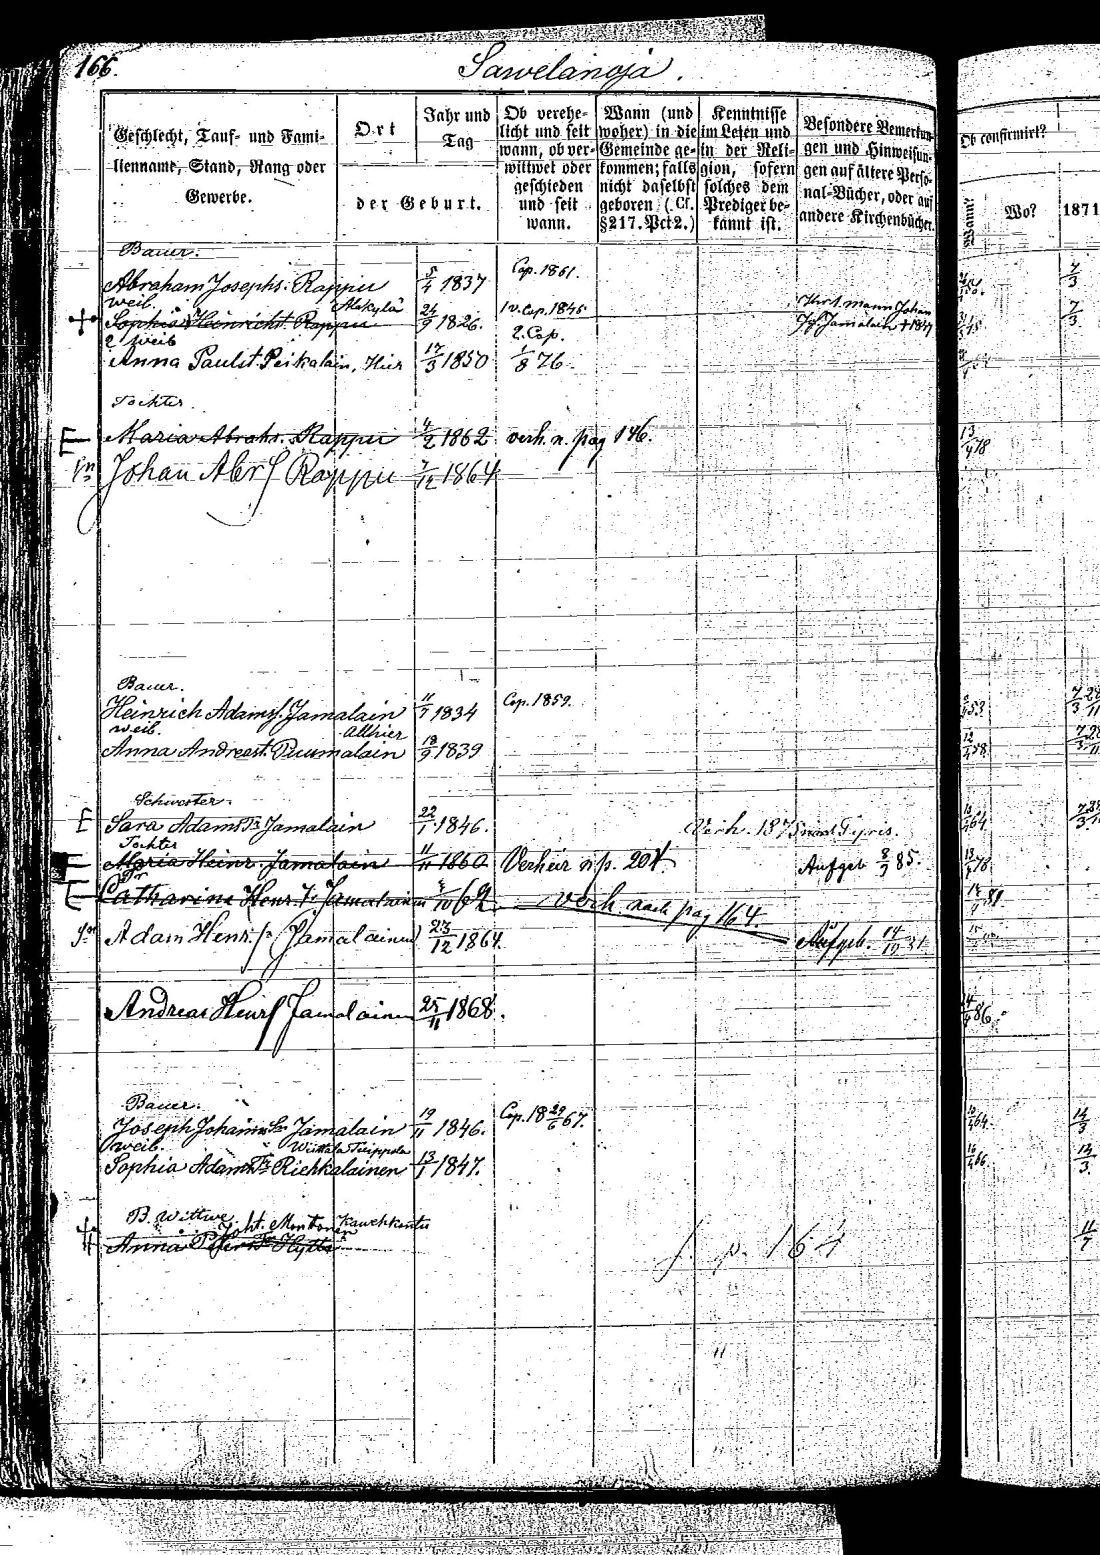 166.
Sawelanoja.
Geschlecht, Tauf- und Fami-
liennamt, Stand, Rang oder
Gewerbe.
Ort
der Geburt.
Jahr und
Tag
Ob verehe-
licht und seit
wann, ob ver-
wittwet oder
geschieden
und seit
wann.
Wann (und
woher) in die
Gemeinde ge-
kommen; falls
nicht daselbst
geboren (Cf.
§217. Pct 2.)
Kenntnisse
im Lesen und
in der Reli-
gion, sofern
solches dem
Prediger be-
kannt ist.
Besondere Bemerkun-
gen und Hinweisun-
gen auf ältere Perso-
nal-Bücher, oder auf
andere Kirchenbücher.
Ob confirmirt?
Wann?
Wo?
1871
Bauer.
Abraham Josephs. Rappu 5/4 1837 Cop. 1861. 7/3
Weib.
Sophia Heinricht. Rappu Alakylä 24/9 1826. 1 v. Cop. 1845 7/3
2 Weib
Anna Paulst. Peikalain, Hier 17/3 1850 2. Cop. 1/8 76
Tochter
E Maria Abrahs. Rappu 4/2 1862 verh. n. pag 146.
Johan Abrs Rappu 7/12 1864
Bauer.
Heinrich Adams. Jamalain 11/7 1834 Cop. 1859.
Weib. allhier
Anna Andreast. Puumalain 18/9 1839
Schwester
E Sara Adams Tr Jamalain 22/1 1846. Verh. 1875
Tochter
Maria Heinr. Jamalain 11/11 1860 Verheir n p. 204. Aufgeb 8/7 85.
E Catharina Henr. Tr Jamalainen 4/10 62 verh nach pag 164.
Adam Henr. Jamalainen 23/12 1864. Aufgeb. 14/10
Andreas Heinrs Jamalainen 25/11 1868.
Bauer.
Joseph Johanns So Jamalain 19/11 1846. Cop. 18 29/6 67. 14/3
Weib.
Sophia Adams Tr Riehkalainen 13/1 1847. 14/3
B. Wittwe
Anna Peters Tr Hytti 11/7
p. 164